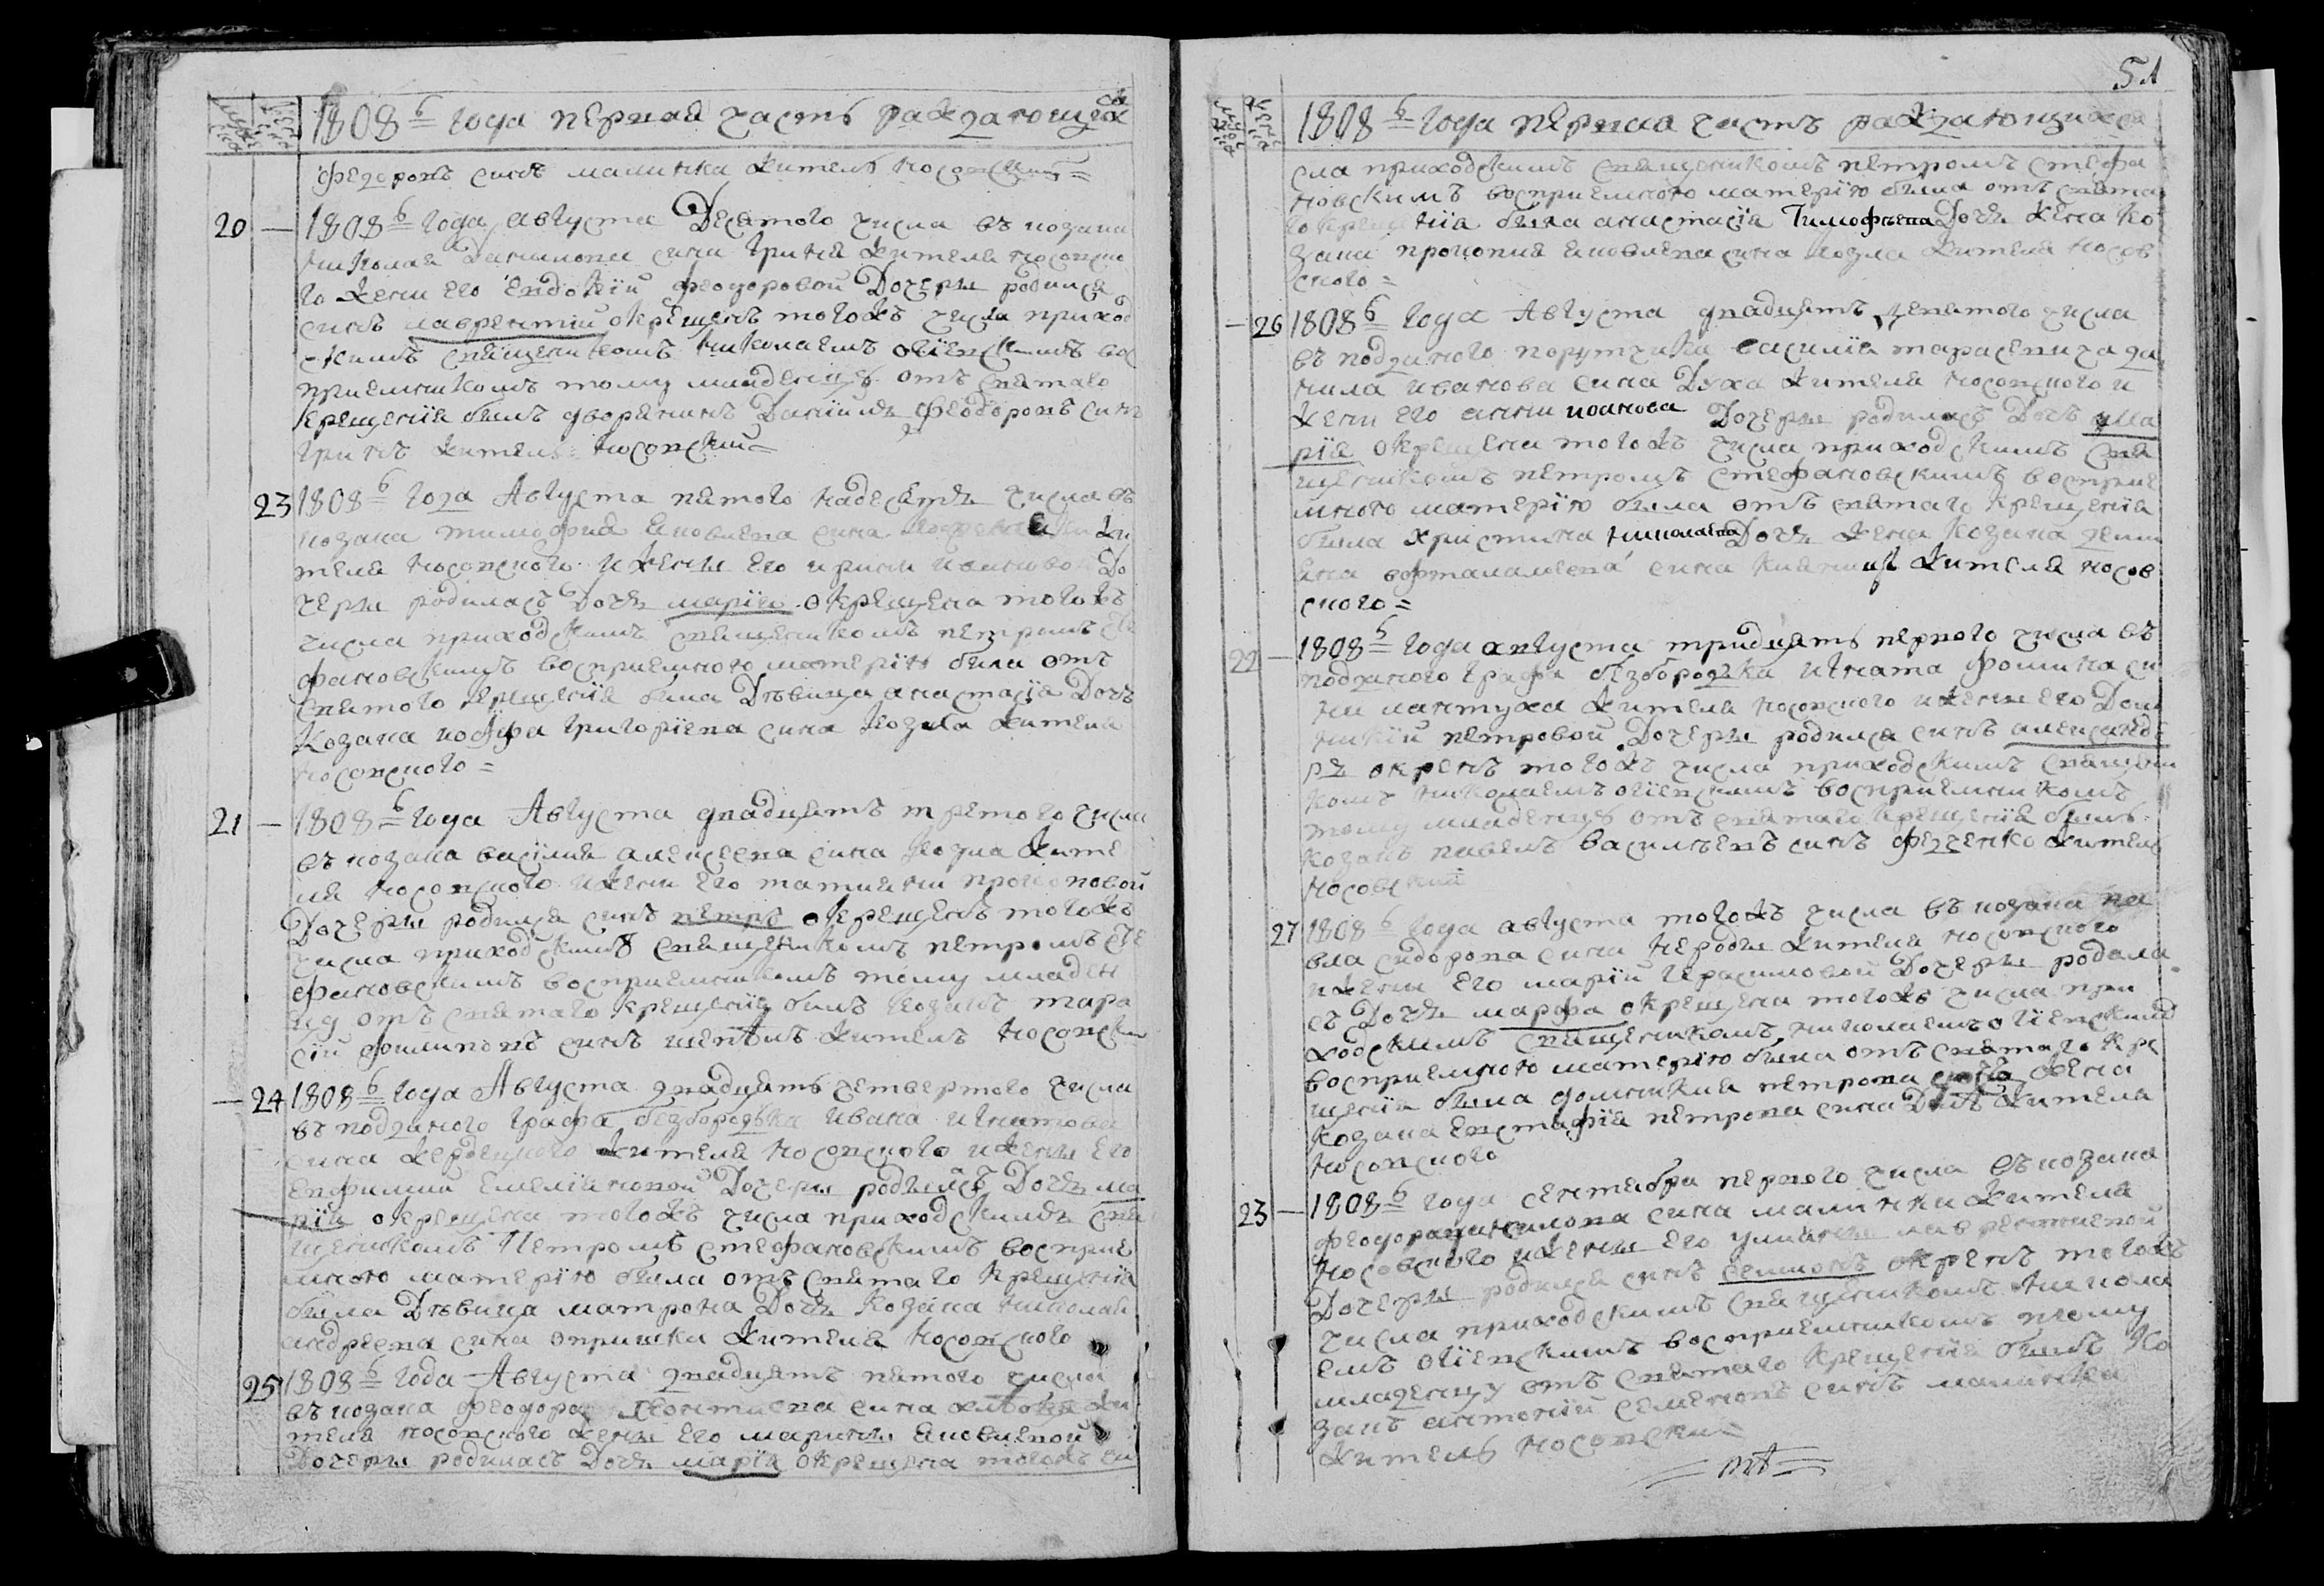 1808 б года первая часть раждающихся
федоровъ синъ малинка житель носовский =
20 — 1808 б года августа Десятого числа въ козака
николая синя гриня житела носовско
го жени его евдокіи феодоровой Дочери родился
синъ лаврентий окрещенъ тогожъ числа приход
скимъ священикомъ николаемъ огіевскимъ вос
приемникомъ тому младенцу отъ святаго
крещенія билъ дворенинъ Даніилъ феодоровъ синъ
гринъ житель носовский =
23 1808 б года Августа пятого надесять числа въ
козака тимофия яковлева сина жи
теля носовского и жени его ирини иоанновой До
чери родилась Дочь марія окрещена тогожъ
числа приходскимъ священикомъ петромъ сте
фановскимъ восприемною материю била отъ
святого крещенія била Дѣвица анастасія Дочь
Козака иосифа григоріева сина козла жителя
носовского =
21 — 1808 б года Августа двадцять третого числа
въ козака василия алексеева сина козла жите
ля носовского и жени его татияни прокоповой
Дочери родился синъ петръ окрещенъ тогожъ
числа приходскимъ священикомъ петромъ сте
фановскимъ восприемникомъ тому младен
цу отъ святаго крещенія билъ козакъ тара
сій филиповъ синъ житель носовски
— 24 1808 б года Августа двадцять четвертого числа
въ подданого графа безбородька ивана игнатова
сина жителя носовского и жени его
евфимии емелияновой Дочери родилась Дочь ма
рія окрещена тогожъ числа приходскимъ свя
щеникомъ Петромъ стефановскимъ восприе
мною материю била отъ святаго крещенія
била Дѣвица матрона Дочь козака николая
андреева сина опришка жителя носовского
25 1808 б года Августа двадцять пятого числа
въ козака феодора леонтиева сина жи
теля носовского жени его марини яковлевой
Дочери родилась Дочь марія окрещена тогожъ чи
51
1808 б года первая часть раждающихся
сла приходскимъ священикомъ петромъ стефа
новскимъ восприемною материю била отъ свята
го крещенія била анастасія Тимофѣева Дочь жена ко
зака прокопия яковлева сина козла жителя носов
ского =
— 26 1808 б года Августа двадцять девятого числа
въ подданого порутчика василія тарасевича да
нила иванова сина Духа жителя носовского и
жени его анни иоанова Дочери родилась Дочь ма
рія окрещена тогожъ числа приходскимъ свя
щеникомъ петромъ стефановскимъ восприе
мною материю била отъ святаго крещенія
била христина николаева Дочь жена козака деми
яна вофталамеева сина жителя носов
ского =
22 — 1808 б года августа тридцять первого числа въ
подданого графа безбородька игната фомина си
на лантуха жителя носовского и жени его Дом
никіи петровой Дочери родился синъ александ
ръ окренъ тогожъ числа приходскимъ священи
комъ николаемъ огіевскимъ восприемникомъ
тому младенцу отъ святаго крещенія билъ
козакъ павелъ васильевъ синъ федченко житель
носовский
27 1808 б года августа тогожъ числа въ козака па
вла сидорова сина нероди жителя носовского
и жени его маріи герасимовой Дочери родила
съ Дочь марфа окрещена тогожъ числа при
ходскимъ священикомъ николаемъ огіевскимъ
восприемною материю била отъ святаго кре
щенія била домникия петрова жена
козака евстафія петрова сина жителя
носовского
23 — 1808 б года сентября первого числа въ козака
феодора сина малинки жителя
носовского и жени его уляни лаврентиевой
Дочери родился синъ семионъ окренъ тогожъ
числа приходскимъ священикомъ никола
емъ огіевскимъ восприемникомъ тому
младенцу отъ святаго крещенія билъ ко
закъ антоний семеновъ синъ малинка
житель носовски =